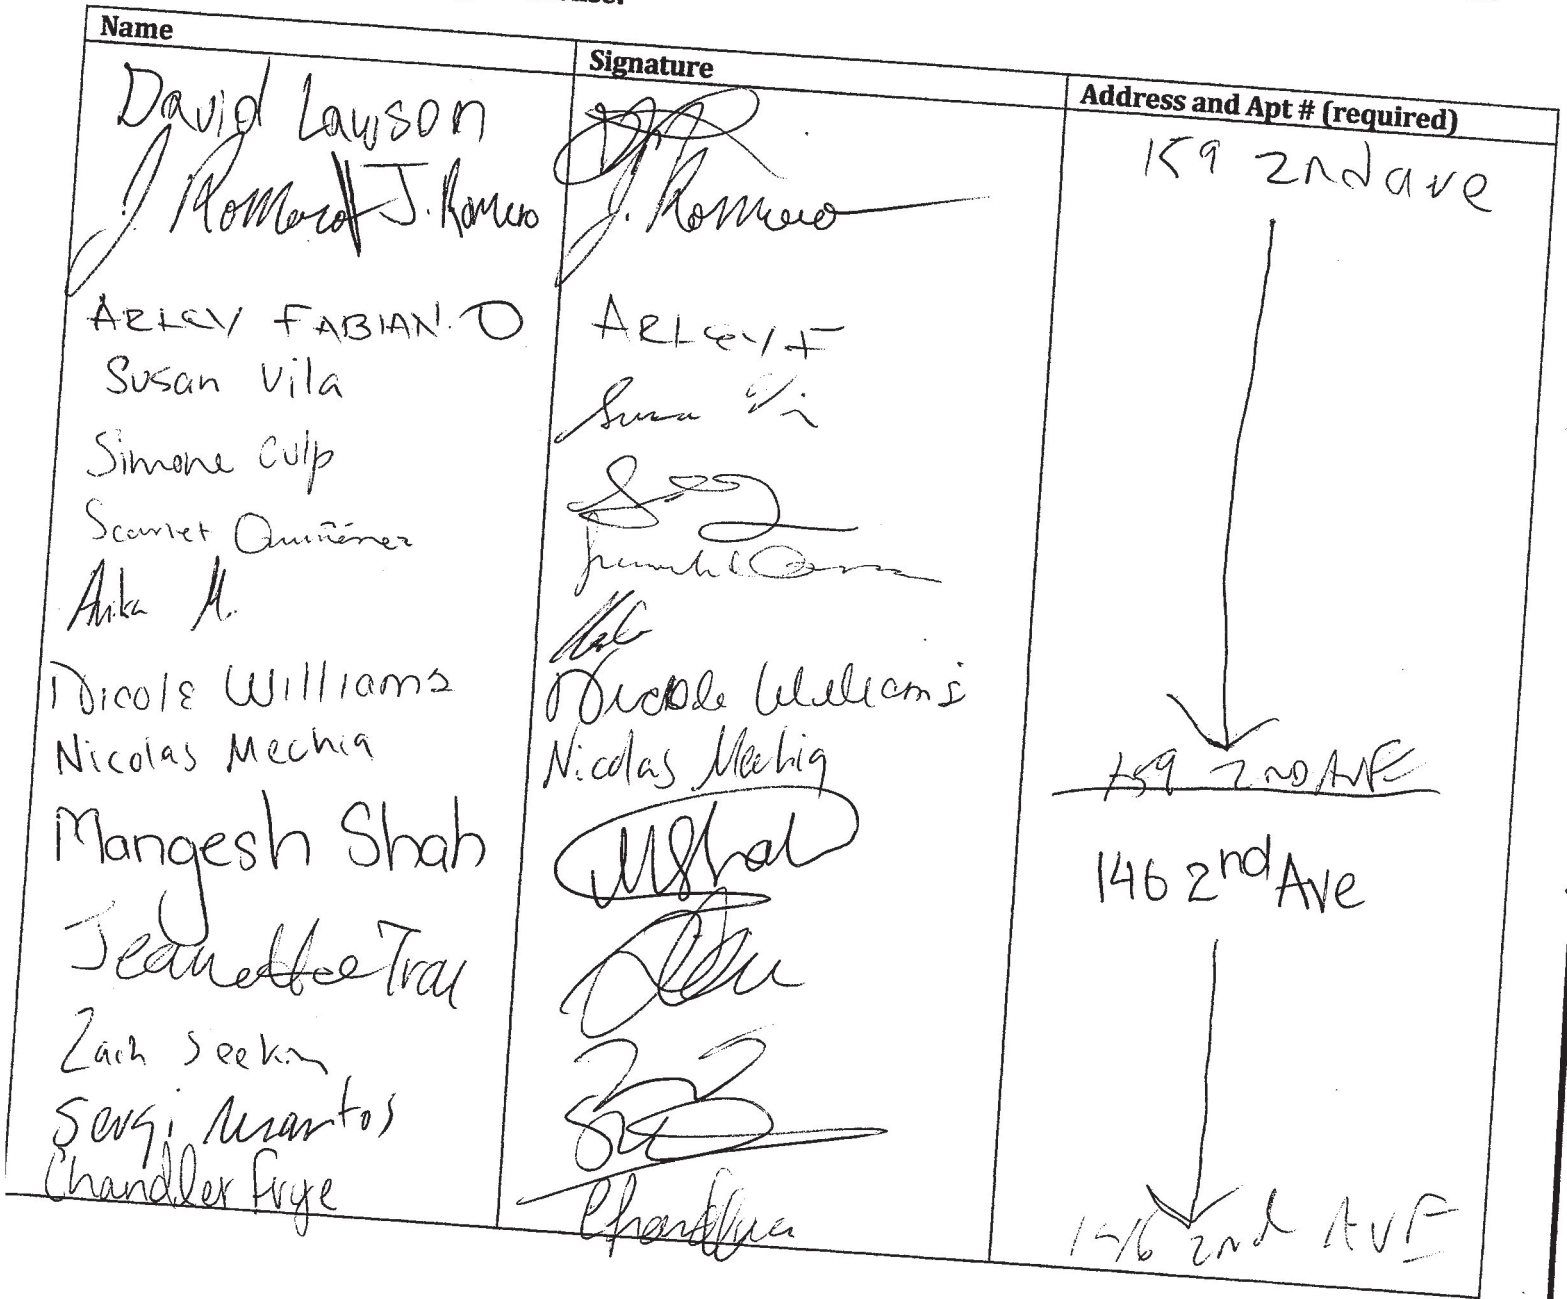 Name
Signature
Address and Apt # (required)
David Lawson
159 2nd ave
J Romero J. Romero
J. Romero
ARLEY FABIAN. O
ARLEY F
Susan Vila
Simone Culp
Scarlet Quiñónez
Anika M.
Nicole Williams
Nicole Williams
Nicolas Mechia
Nicolas Mechia
159 2ND AVE
Mangesh Shah
MShah
146 2nd Ave
Jeanette Tran
Zach
Sergi
Chandler Frye
146 2nd AVE